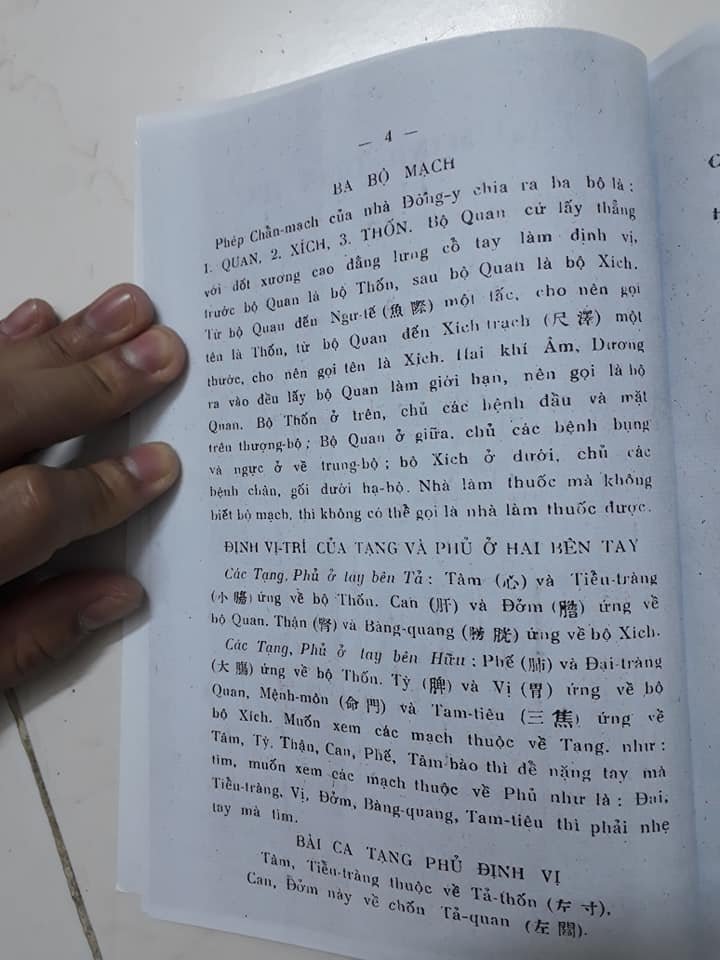 — 4 —
BA BỘ MẠCH
Phép Chẩn-mạch của nhà Đông-y chia ra ba bộ là :
1. QUAN, 2. XÍCH, 3. THỐN. Bộ Quan cứ lấy thẳng
với đốt xương cao đằng lưng cổ tay làm định vị,
trước bộ Quan là bộ Thốn, sau bộ Quan là bộ Xích.
Từ bộ Quan đến Ngư-tế (魚際) một tấc, cho nên gọi
tên là Thốn, từ bộ Quan đến Xích trạch (尺澤) một
thước, cho nên gọi tên là Xích. Hai khí Âm, Dương
ra vào đều lấy bộ Quan làm giới hạn, nên gọi là bộ
Quan. Bộ Thốn ở trên, chủ các bệnh đầu và mặt
trên thượng-bộ ; Bộ Quan ở giữa. chủ các bệnh bụng
và ngực ở về trung-bộ ; bộ Xích ở dưới, chủ các
bệnh chân, gối dưới hạ-bộ. Nhà làm thuốc mà không
biết bộ mạch, thì không có thể gọi là nhà làm thuốc được.
ĐỊNH VỊ-TRÍ CỦA TẠNG VÀ PHỦ Ở HAI BÊN TAY
Các Tạng, Phủ ở tay bên Tả : Tâm (心) và Tiểu-tràng
(小腸) ứng về bộ Thốn. Can (肝) và Đởm (膽) ứng về
bộ Quan. Thận (腎) và Bàng-quang (膀胱) ứng về bộ Xích.
Các Tạng, Phủ ở tay bên Hữu : Phế (肺) và Đại-tràng
(大腸) ứng về bộ Thốn. Tỳ (脾) và Vị (胃) ứng về bộ
Quan, Mệnh-môn (命門) và Tam-tiêu (三焦) ứng về
bộ Xích. Muốn xem các mạch thuộc về Tạng. như :
Tâm, Tỳ, Thận, Can, Phế, Tâm bào thì đề nặng tay mà
tìm, muốn xem các mạch thuộc về Phủ như là : Đại,
Tiểu-tràng, Vị, Đởm, Bàng-quang, Tam-tiêu thì phải nhẹ
tay mà tìm.
BÀI CA TẠNG PHỦ ĐỊNH VỊ
Tâm, Tiểu-tràng thuộc về Tả-thốn (左寸),
Can, Đởm này về chốn Tả-quan (左關).